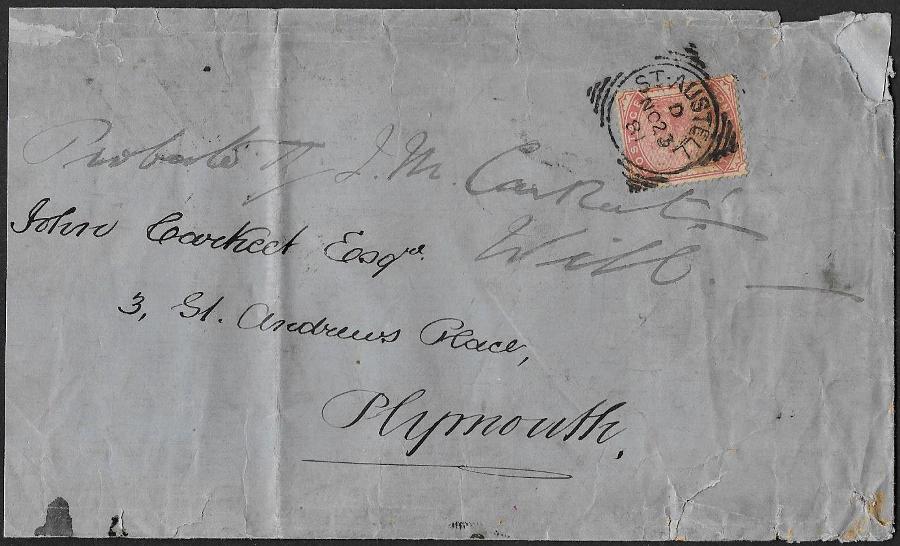 ST. AUSTELL
D
NO 23
81
Probate of J. M. Carkeet's
Will.
John Carkeet Esqre.
3, St. Andrews Place,
Plymouth,